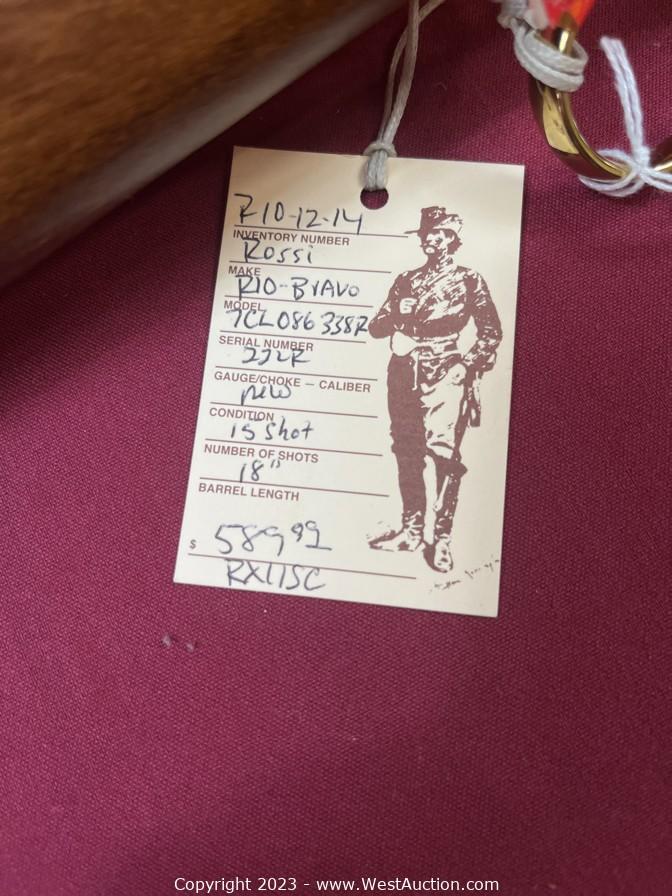 R10-12-14
INVENTORY NUMBER
Rossi
MAKE
RIO-BrAVo
MODEL
7CL086338R
SERIAL NUMBER
22LR
GAUGE/CHOKE — CALIBER
new
CONDITION
15 Shot
NUMBER OF SHOTS
18"
BARREL LENGTH
$ 589 99
RX115C
Copyright 2023 - www.WestAuction.com